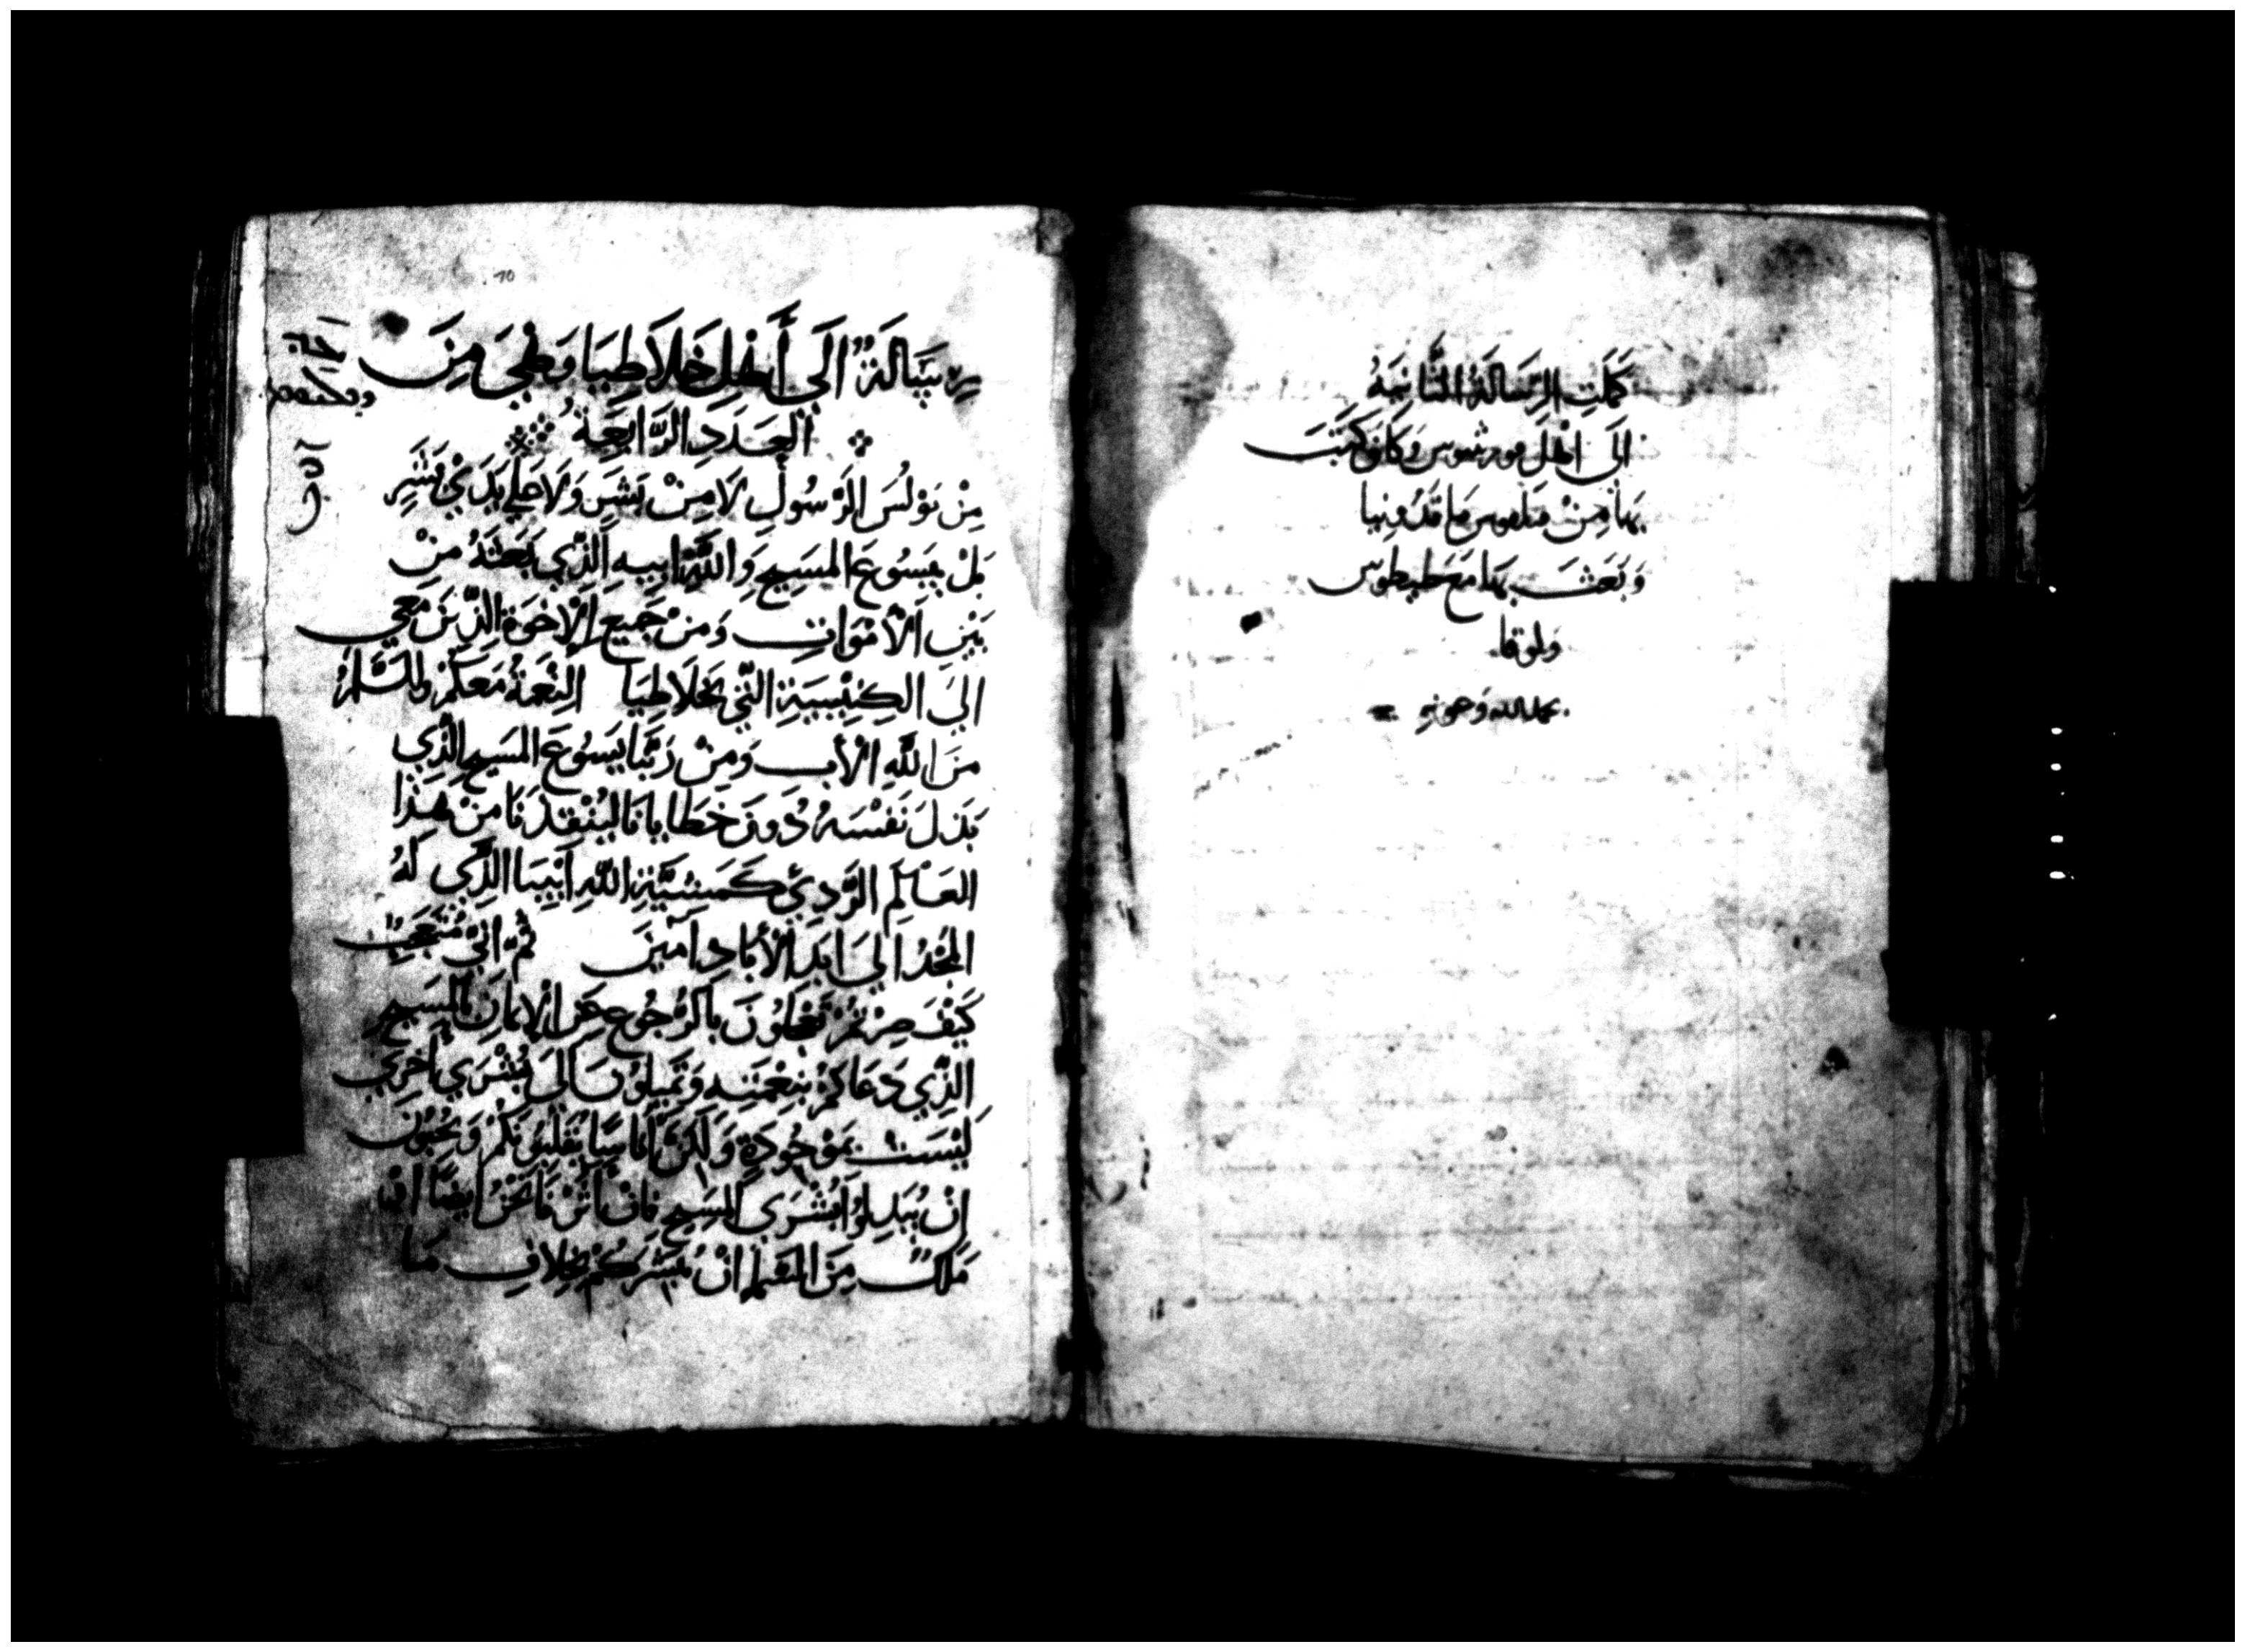 كَمَلَتِ الرِّسَالَةُ الثَّانِيَةُ
الَى اهْلِ قورنثيوس وَكَانَ كَتَبَ
بِهَا مِنْ فيلبوس مَاقَدُونِيا
وَبَعَثَ بِهَا مَعَ طيطوس
وَلوقا
رِسَالَةٌ الَي أَهْلِ غَلَاطِيَا وَهْيَ مِنَ
العَدَدِ الرَّابِعَةُ
مِنْ بَوْلُسَ الرَّسُولِ لَا مِنْ بَشَرٍ وَلَا عَلي يَدَيْ بَشَرٍ
بَلْ بِيَسُوعَ المَسِيحِ وَاللَّهِ ابِيهِ الَّذِي بَعَثَهُ مِنْ
بَيْنِ الْأَمْوَاتِ وَمِنْ جَمِيعِ الْاخْوَةِ الَّذِينَ مَعِي
الَي الكَنِيسَةِ الَّتِي بِغَلَاطِيَا النِّعْمَةُ مَعَكُمْ وَالسَّلَمُ
مِنَ اللَّهِ الْأَبِ وَمِنْ رَبِّنَا يَسُوعَ المَسِيحِ الَّذِي
بَذَلَ نَفْسَهُ دُونَ خَطَايَانَا لِيُنْقِذَنَا مِنْ هَذَا
العَالَمِ الرَّدِيِّ كَمَشِيَّةِ اللَّهِ أَبِينَا الَّذِي لَهُ
المَجْدُ الَي ابَدِ الْأَبَادِ آمِينَ ثُمَّ انِّي مُتَعَجِّبٌ
كَيْفَ صِرْتُمْ تَعْجَلُونَ بِالرُّجُوعِ عَنِ الْايمَانِ بِالمَسِيحِ
الَّذِي دَعَاكُمْ بِنِعْمَتِهِ وَتَمِيلُونَ الَى بُشْرَي أُخْرَي
لَيْسَتْ بِمَوْجُودَةٍ وَلَكِنَّ انَاسًا يُقْلِقُونَكُمْ وَيُحِبُّونَ
انْ يُبَدِلُوا بُشْرَي المَسِيحِ فَانْ انْ نَحْنُ ايضًا اوْ
مَلَكٌ مِنَ السَّمَا انْ نُبَشِّرَكُمْ بِخِلَافِ مَا